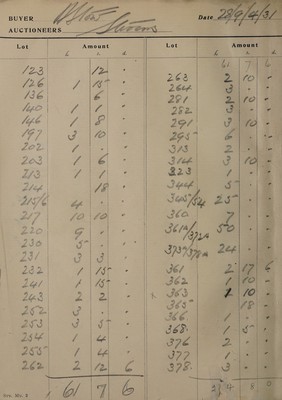 BUYER
AUCTIONEERS Stevens
Date 28/9/4/31
Lot Amount
£ s. d.
123 12 .
126 1 15 .
136 6 .
140 1 1 .
146 1 8 .
197 3 10 .
202 1 . .
203 1 6 .
213 1 1 .
214 18 .
215/6 4 . .
217 10 10 .
220 9 . .
230 5 . .
231 3 3 .
232 1 15 .
241 1 15 .
243 2 2 .
252 3 . .
253 3 5 .
254 1 4 .
255 1 4 .
262 2 12 6
61 7 6
Lot Amount
£ s. d.
61 7 6
263 2 10 .
264 3 . .
281 2 10 .
282 3 . .
291 3 10 .
295 6 . .
313 2 . .
314 3 10 .
323 1 . .
344 5 . .
345/54 25 . .
360 7 . .
361A/372A 50 . .
373/378A 24 . .
361 2 17 6
362 1 10 .
363 1 10 .
365 18 .
366 1 . .
368 1 5 .
376 2 . .
377 1 . .
378 3 . .